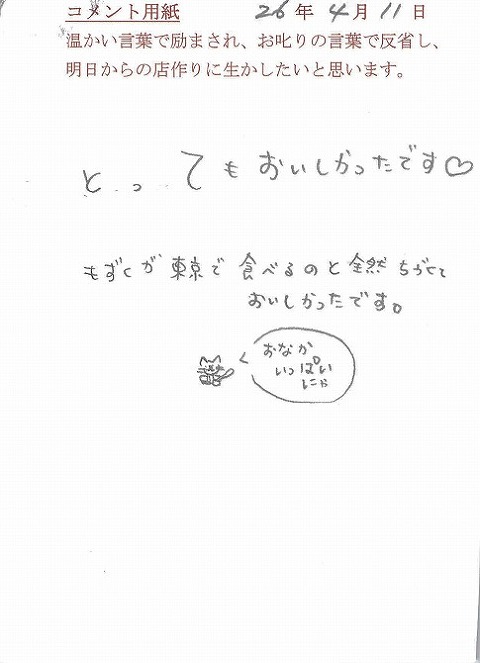 コメント用紙 26年4月11日
温かい言葉で励まされ、お叱りの言葉で反省し、
明日からの店作りに生かしたいと思います。
とってもおいしかったです♡
もずくが東京で食べるのと全然ちがくて
おいしかったです。
おなか
いっぱい
にゃ